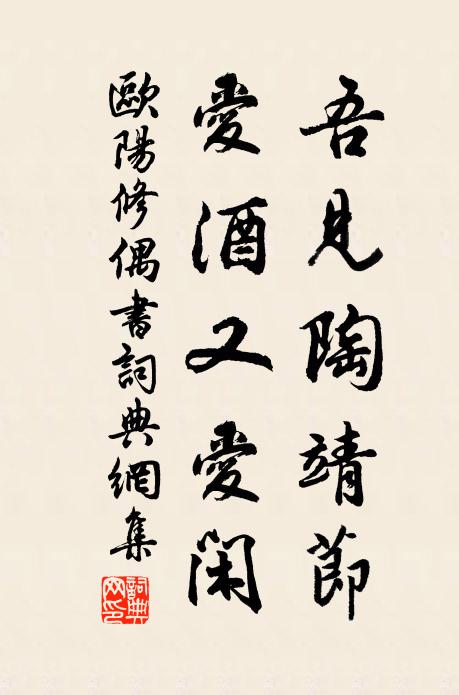 吾見陶靖節
愛酒又愛閑
歐陽修偶書詞典網集
詞典網印